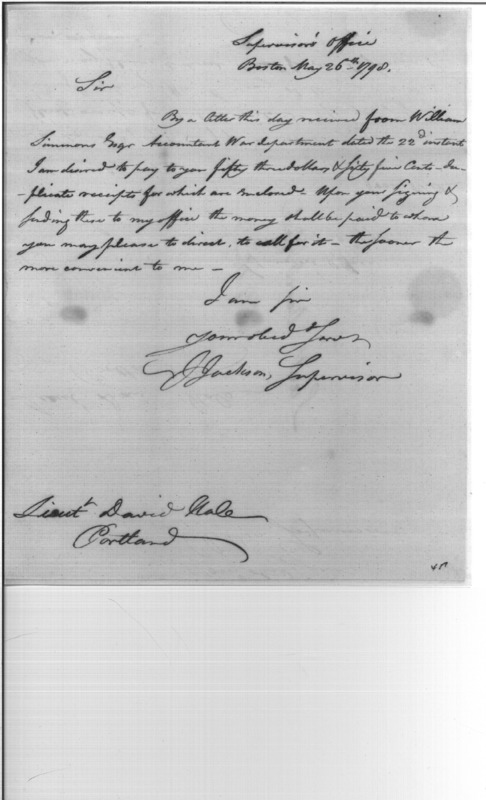 Supervisor's Office
Boston May 26th 1798.
Sir
By a letter this day received from William
Simmons Esqr Accountant War department dated the 22d instant
I am desired to pay to you fifty three dollars & sixty five Cents - du-
-plicate receipts for which are enclosed - Upon your signing &
sending these to my office the money shall be paid to whom
you may please to direct, to call for it - the sooner the
more convenient to me -
I am sir
your obedt Servt
J Jackson, Supervisor
Lieut David Hale
Portland